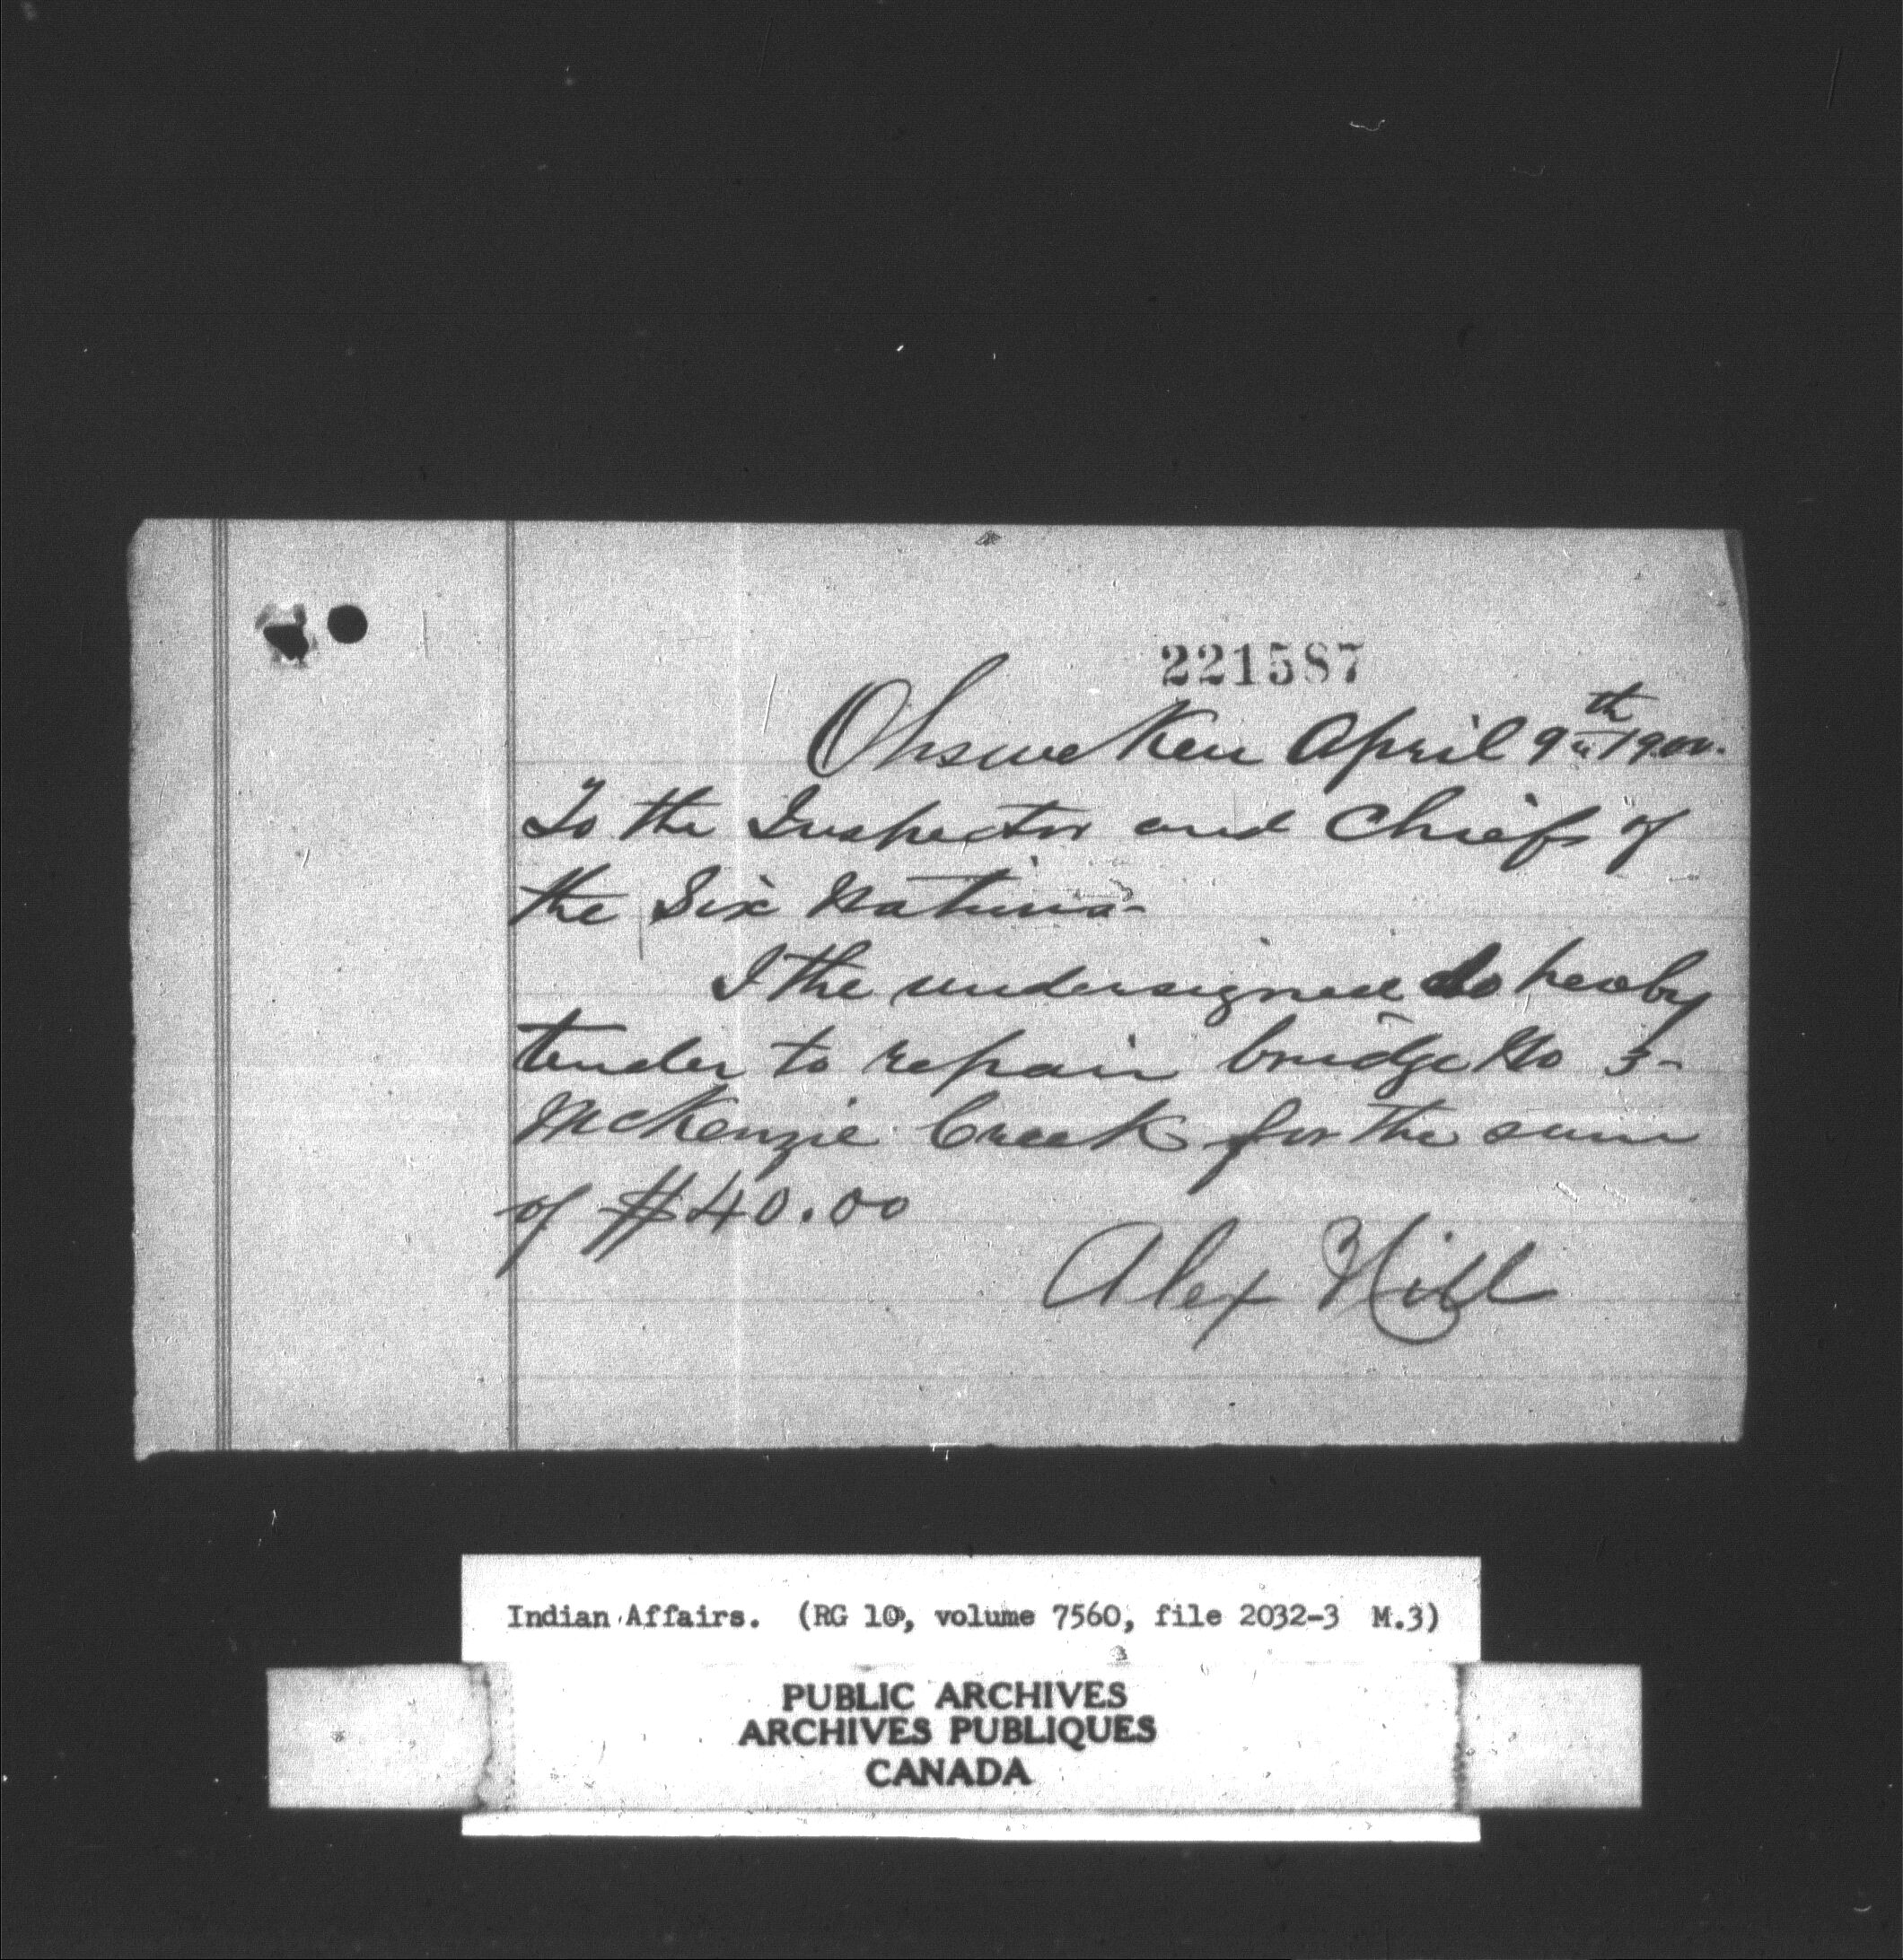 221587
Ohsweken April 9th 1900.
To the Inspector and Chiefs of
the Six Nations-
I the undersigned do hereby
tender to repair bridge No 3-
McKenzie Creek for the sum
of $40.00
Alex Hill
Indian Affairs. (RG 10, volume 7560, file 2032-3 M.3)
PUBLIC ARCHIVES
ARCHIVES PUBLIQUES
CANADA